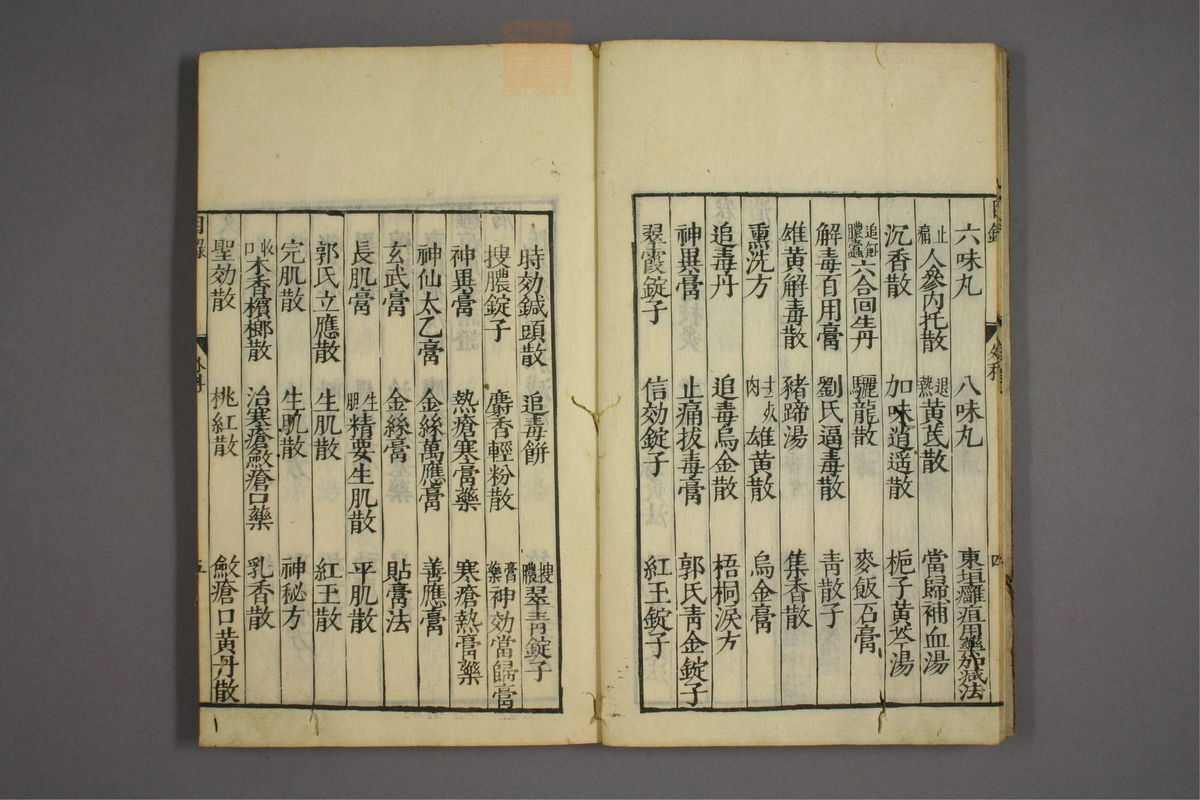 六味丸 八味丸 東垣癰疽用藥加减法
止痛人參内托散 退熱黄芪散 當歸補血湯
沉香散 加味逍遥散 梔子黄芩湯
追解膿蠱六合回生丹 驪龍散 麥飯石膏
解毒百用膏 劉氏逼毒散 青散子
雄黄解毒散 猪蹄湯 集香散
熏洗方 雄黄散 烏金膏
追毒丹 追毒烏金散 梧桐淚方
神異膏 止痛拔毒膏 郭氏青金錠子
翠霞錠子 信効錠子 紅玉錠子
目錄 外科 四
時効鍼頭散 追毒餅 搜膿翠青錠子
搜膿錠子 麝香輕粉散 膏藥神効當歸膏
神異膏 熱瘡寒膏藥 寒瘡熱膏藥
神仙太乙膏 金絲萬應膏 善應膏
玄武膏 金絲膏 貼膏法
長肌膏 生肌精要生肌散 平肌散
郭氏立應散 生肌散 紅玉散
完肌散 生肌散 神秘方
木香檳榔散 治寒瘡斂瘡口藥 乳香散
聖効散 桃紅散 斂瘡口黄丹散
目錄 外科 五